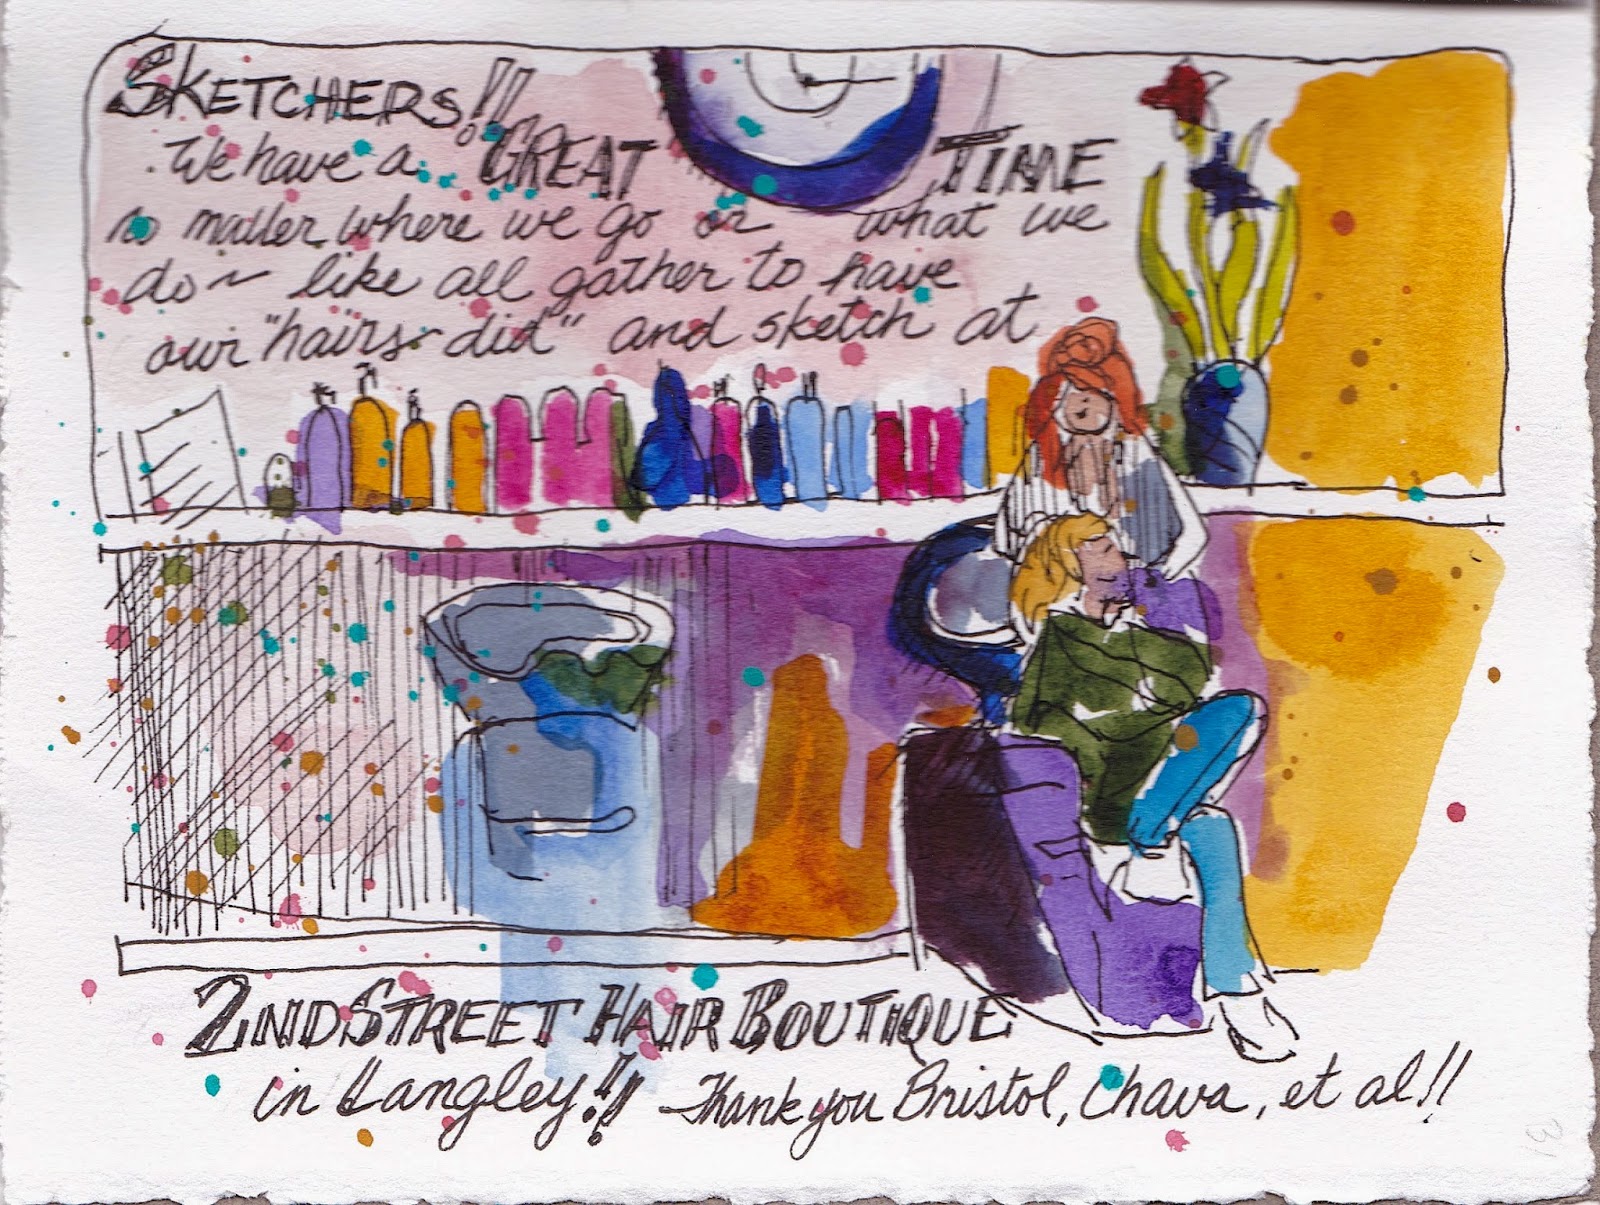 SKETCHERS!!
We have a GREAT TIME
no matter where we go or what we
do ~ like all gather to have
our "hairs-did" and sketch at
2ND STREET HAIR BOUTIQUE
in Langley!! Thank you Bristol, Chava, et al!!